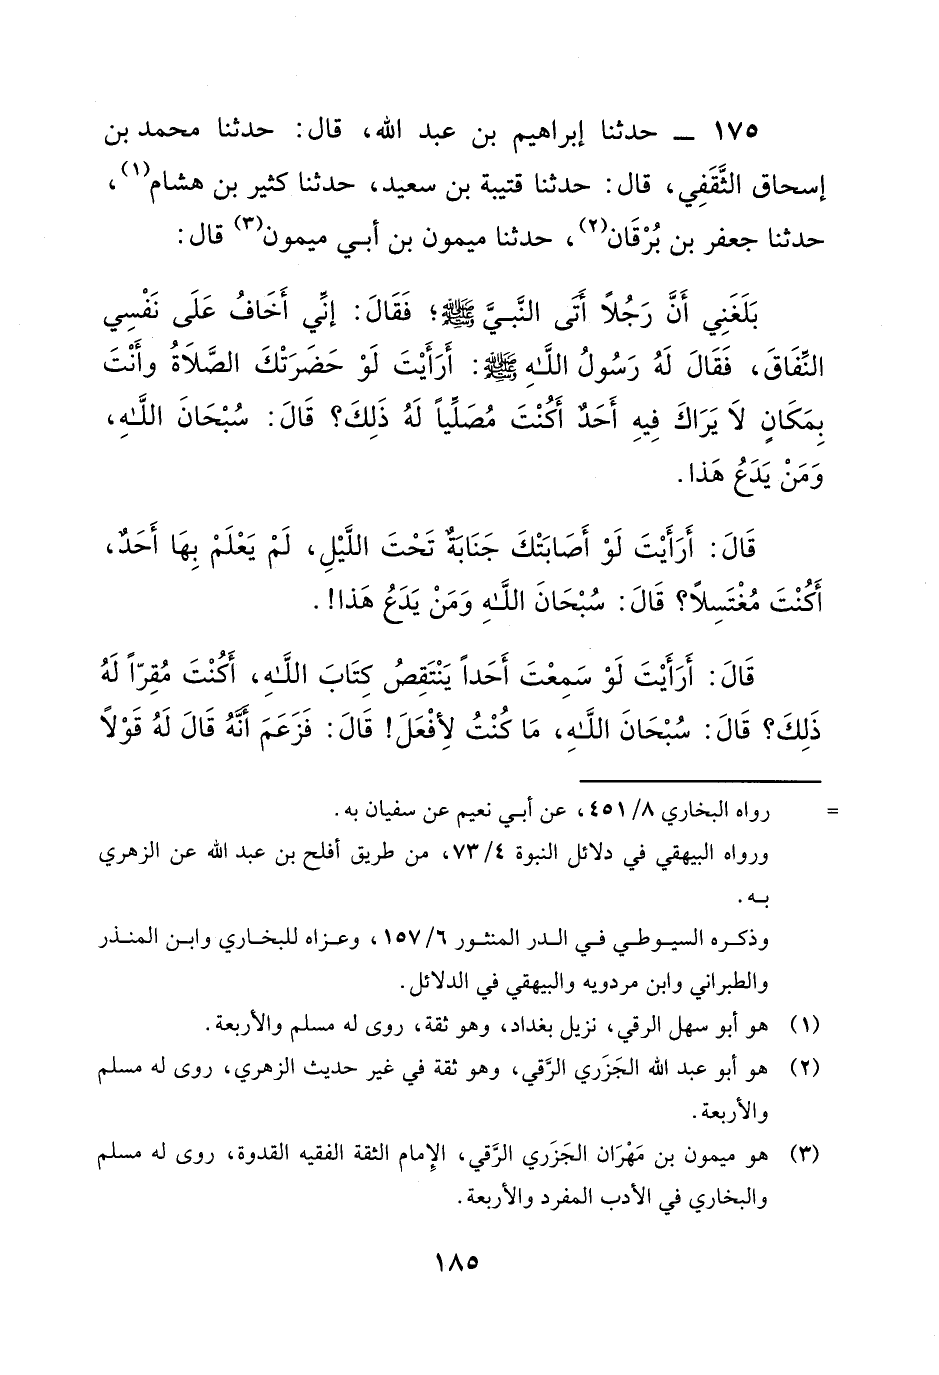 ١٧٥ ــ حدثنا إبراهيم بن عبد الله، قال: حدثنا محمد بن
إسحاق الثَّقَفِي، قال: حدثنا قتيبة بن سعيد، حدثنا كثير بن هشام(١)،
حدثنا جعفر بن بُرْقَان(٢)، حدثنا ميمون بن أبي ميمون(٣) قال:
بَلَغَنِي أَنَّ رَجُلاً أَتَى النَّبِيَّ ﷺ؛ فَقَالَ: إِنِّي أَخَافُ عَلَى نَفْسِي
النِّفَاقَ، فَقَالَ لَهُ رَسُولُ اللَّهِ ﷺ: أَرَأَيْتَ لَوْ حَضَرَتْكَ الصَّلَاةُ وأَنْتَ
بِمَكَانٍ لَا يَرَاكَ فِيهِ أَحَدٌ أَكُنْتَ مُصَلِّياً لَهُ ذَلِكَ؟ قَالَ: سُبْحَانَ اللَّهِ،
وَمَنْ يَدَعُ هَذا.
قَالَ: أَرَأَيْتَ لَوْ أَصَابَتْكَ جَنَابَةٌ تَحْتَ اللَّيْلِ، لَمْ يَعْلَمْ بِهَا أَحَدٌ،
أَكُنْتَ مُغْتَسِلاً؟ قَالَ: سُبْحَانَ اللَّهِ وَمَنْ يَدَعُ هَذا!.
قَالَ: أَرَأَيْتَ لَوْ سَمِعْتَ أَحَداً يَنْتَقِصُ كِتَابَ اللَّهِ، أَكُنْتَ مُقِرّاً لَهُ
ذَلِكَ؟ قَالَ: سُبْحَانَ اللَّهِ، مَا كُنْتُ لِأَفْعَلَ! قَالَ: فَزَعَمَ أَنَّهُ قَالَ لَهُ قَوْلاً
= رواه البخاري ٤٥١/٨، عن أبي نعيم عن سفيان به.
ورواه البيهقي في دلائل النبوة ٧٣/٤، من طريق أفلح بن عبد الله عن الزهري
به.
وذكره السيوطي في الدر المنثور ١٥٧/٦، وعزاه للبخاري وابن المنذر
والطبراني وابن مردويه والبيهقي في الدلائل.
(١) هو أبو سهل الرقي، نزيل بغداد، وهو ثقة، روى له مسلم والأربعة.
(٢) هو أبو عبد الله الجَزَري الرَّقي، وهو ثقة في غير حديث الزهري، روى له مسلم
والأربعة.
(٣) هو ميمون بن مَهْرَان الجَزَري الرَّقي، الإمام الثقة الفقيه القدوة، روى له مسلم
والبخاري في الأدب المفرد والأربعة.
١٨٥